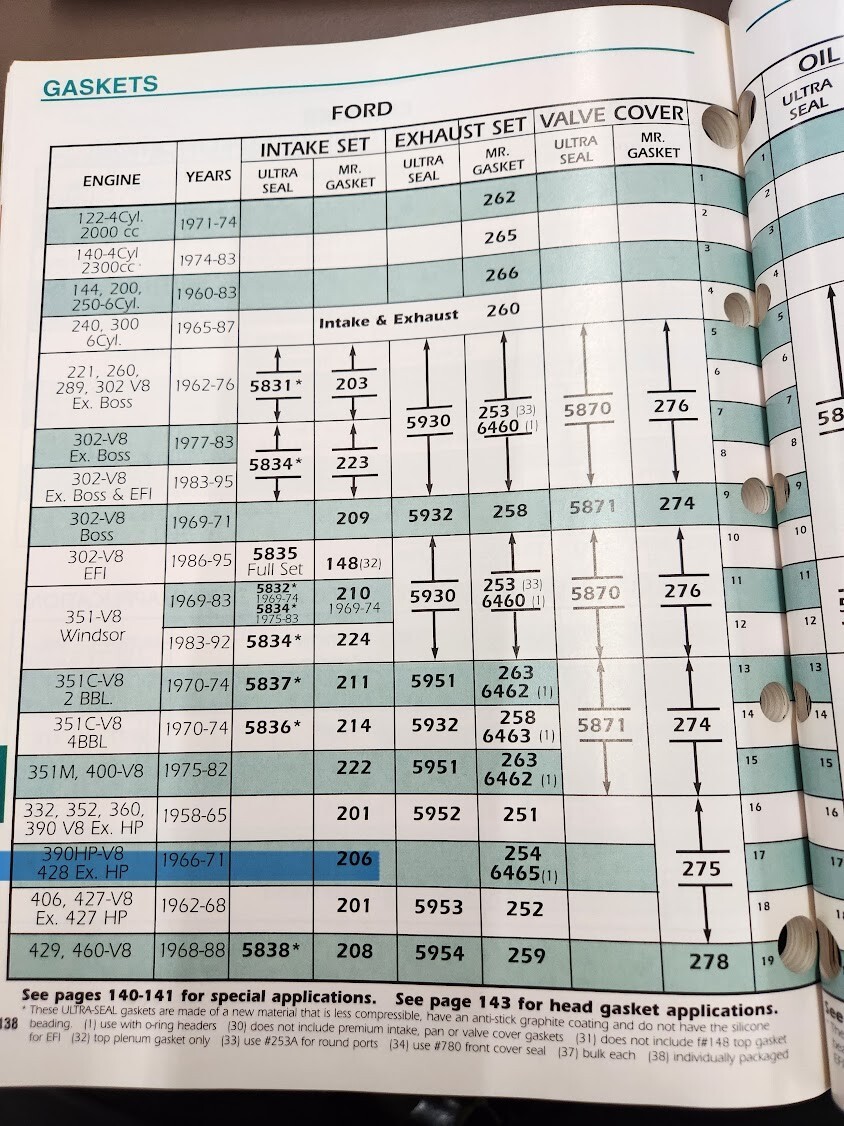 GASKETS
FORD
INTAKE SET EXHAUST SET VALVE COVER
ENGINE YEARS ULTRA SEAL MR. GASKET ULTRA SEAL MR. GASKET ULTRA SEAL MR. GASKET
122-4Cyl. 2000 cc 1971-74 262 1
140-4Cyl 2300cc 1974-83 265 2
144, 200, 250-6Cyl. 1960-83 266 3
240, 300 6Cyl. 1965-87 Intake & Exhaust 260 4
221, 260, 289, 302 V8 Ex. Boss 1962-76 5831* 203 5930 253 (33) 6460 (1) 5870 276 5 6 7
302-V8 Ex. Boss 1977-83 5834* 223 8
302-V8 Ex. Boss & EFI 1983-95
302-V8 Boss 1969-71 209 5932 258 5871 274 9
302-V8 EFI 1986-95 5835 Full Set 148(32) 5930 253 (33) 6460 (1) 5870 276 10
351-V8 Windsor 1969-83 5832* 1969-74 5834* 1975-83 210 1969-74 11
1983-92 5834* 224 12
351C-V8 2 BBL. 1970-74 5837* 211 5951 263 6462 (1) 5871 274 13
351C-V8 4BBL 1970-74 5836* 214 5932 258 6463 (1) 14
351M, 400-V8 1975-82 222 5951 263 6462 (1) 15
332, 352, 360, 390 V8 Ex. HP 1958-65 201 5952 251 275 16
390HP-V8 428 Ex. HP 1966-71 206 254 6465(1) 17
406, 427-V8 Ex. 427 HP 1962-68 201 5953 252 18
429, 460-V8 1968-88 5838* 208 5954 259 278 19
See pages 140-141 for special applications. See page 143 for head gasket applications.
* These ULTRA-SEAL gaskets are made of a new material that is less compressible, have an anti-stick graphite coating and do not have the silicone
138 beading. (1) use with o-ring headers (30) does not include premium intake, pan or valve cover gaskets (31) does not include f#148 top gasket
for EFI (32) top plenum gasket only (33) use #253A for round ports (34) use #780 front cover seal (37) bulk each (38) individually packaged
OIL
ULTRA SEAL
1
2
3
4
5
6
7
58
8
9
10
11
12
13
14
15
16
17
See